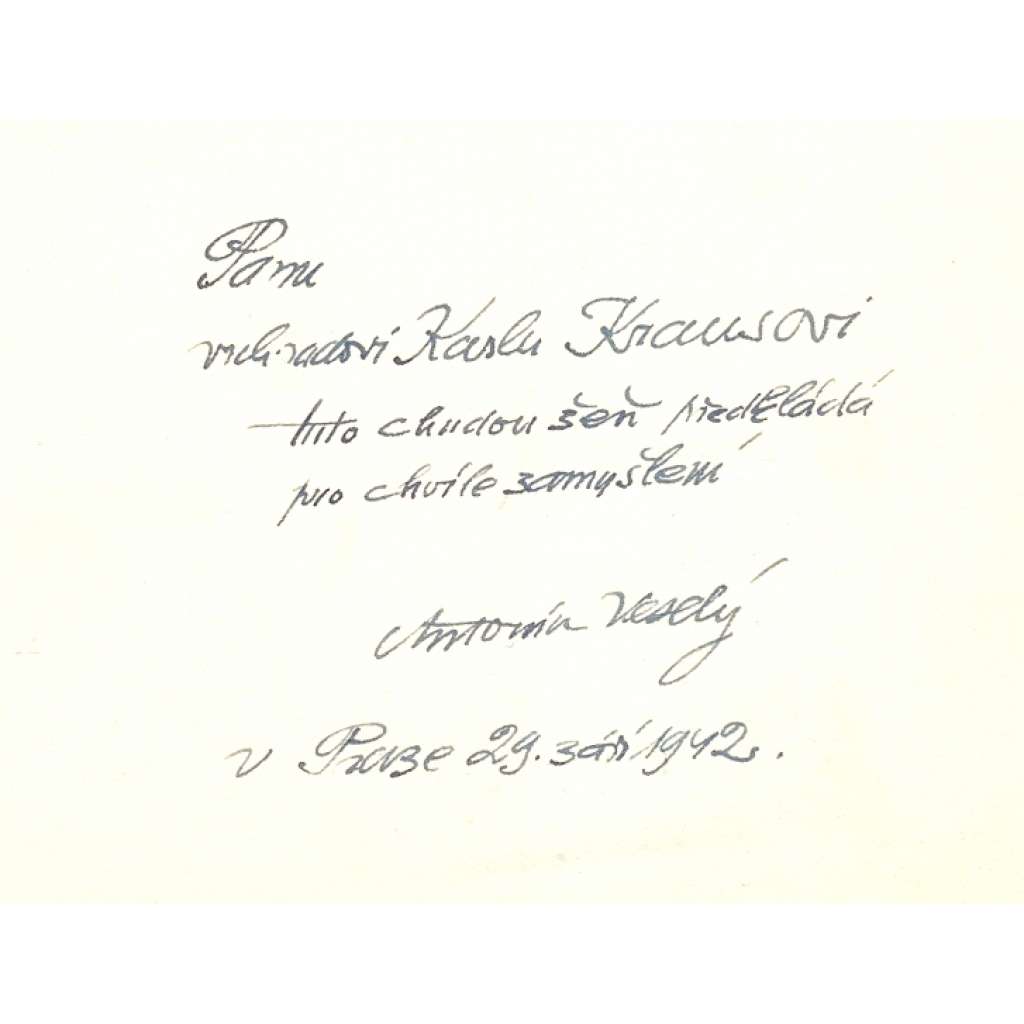 Panu
vrch. radovi Karlu Krausovi
tuto chudou žeň předkládá
pro chvíle zamyšlení
Antonín Veselý
v Praze 29. září 1942.